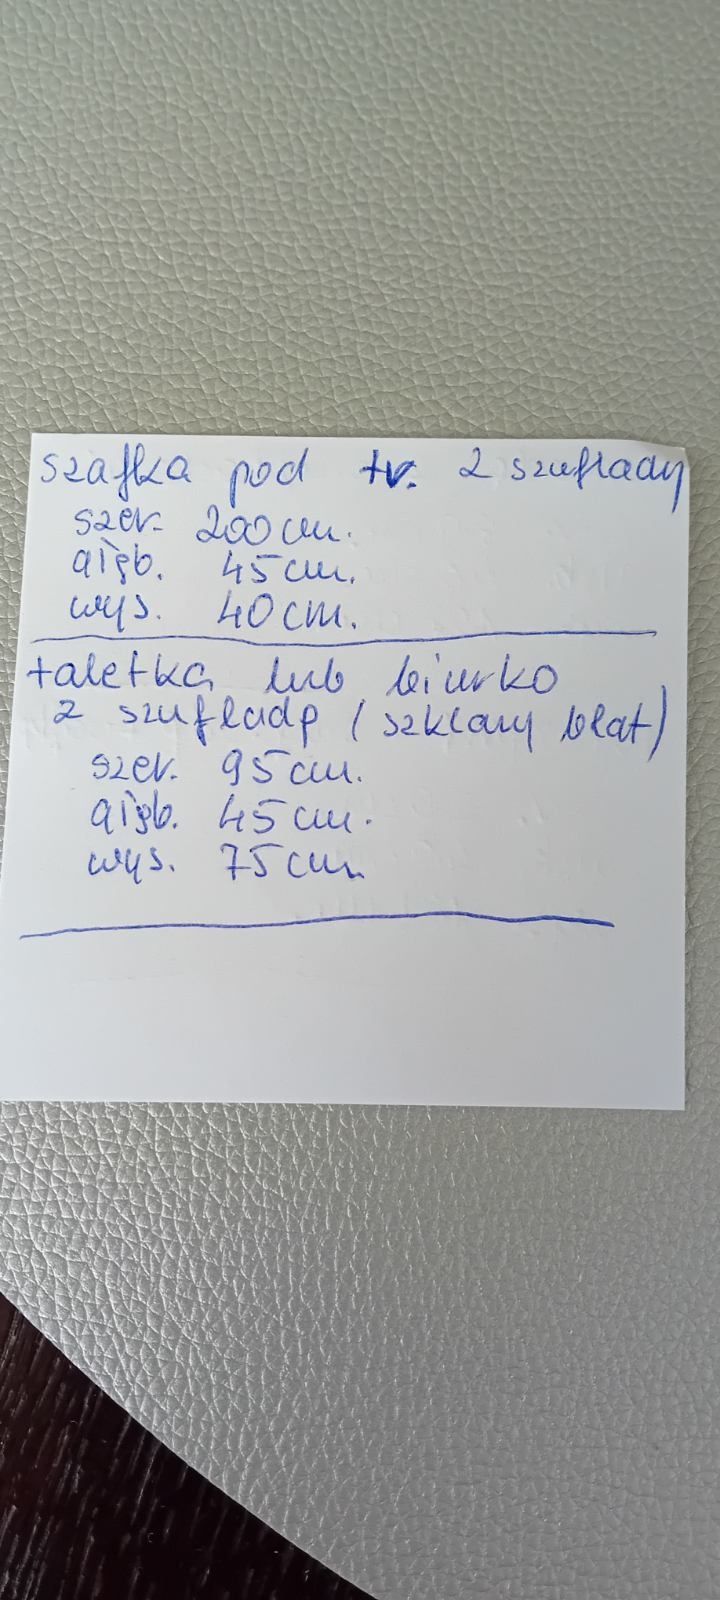 szafka pod tv. 2 szuflady
szer. 200 cm.
głęb. 45 cm.
wys. 40 cm.
taletka lub biurko
2 szuflady (szklany blat)
szer. 95 cm.
głęb. 45 cm.
wys. 75 cm.